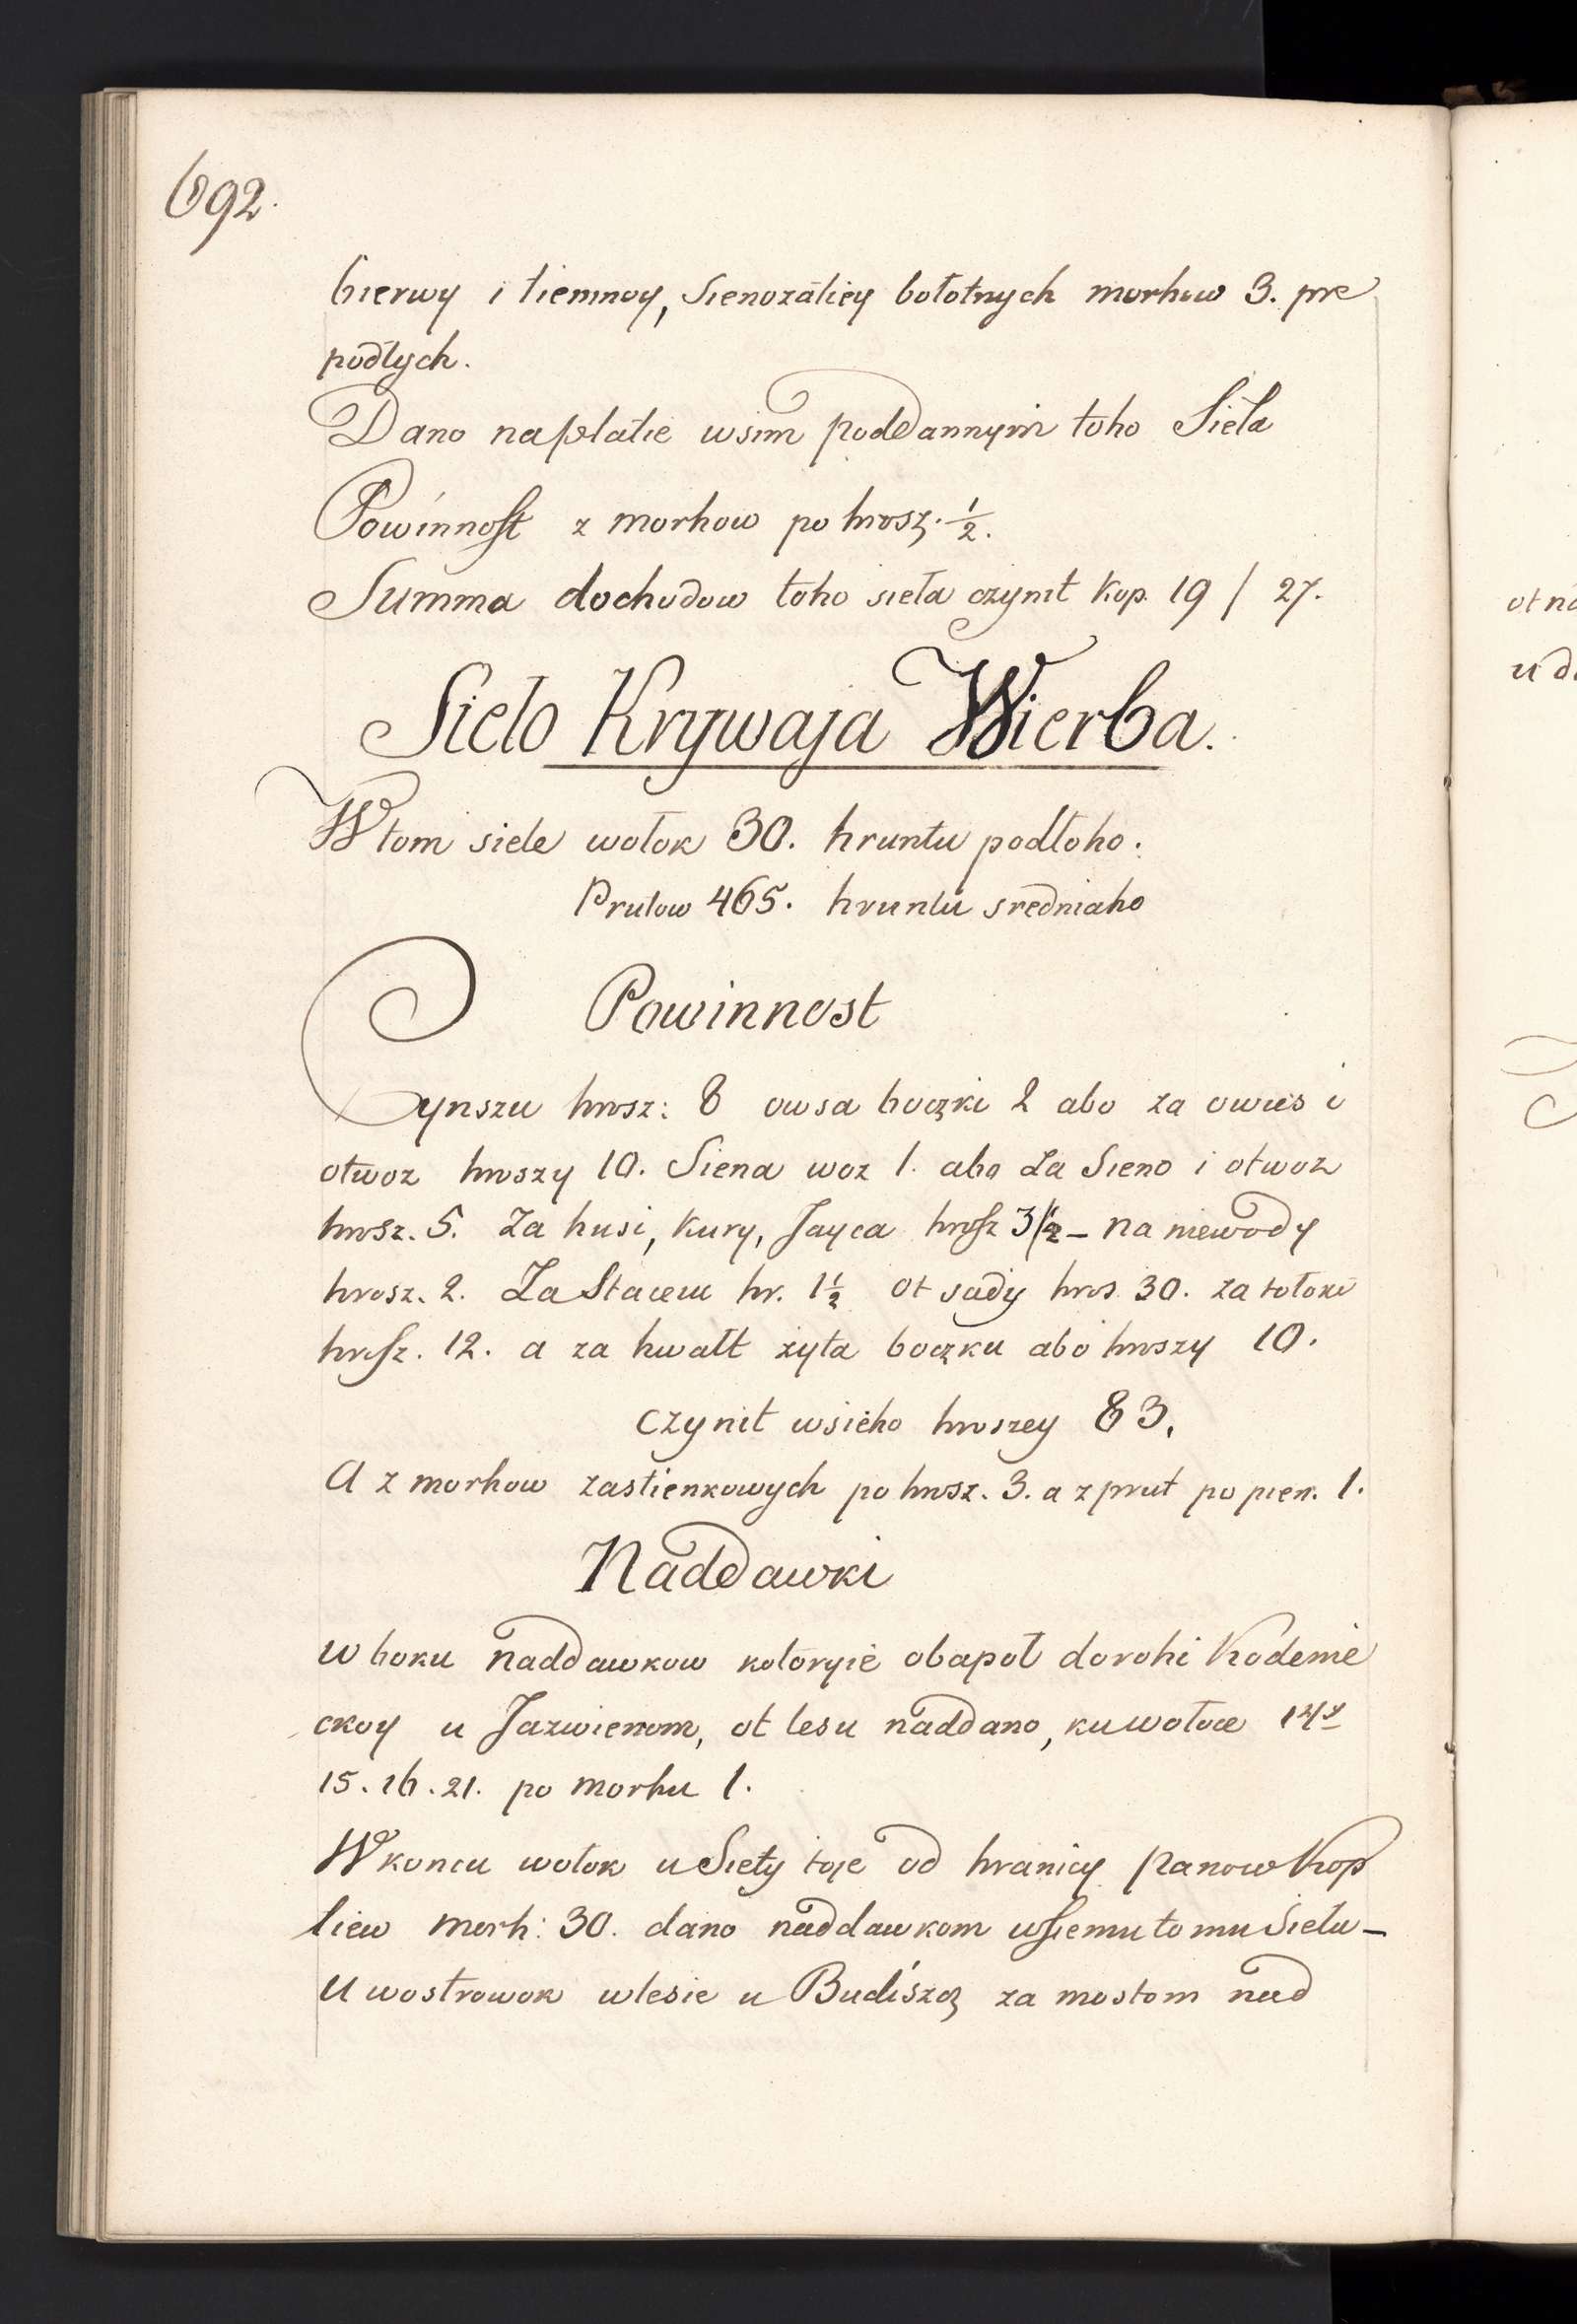 692.
bierwy i tiemnoy, Sienożatiey bołotnych morhow 3. pre
podłych.
Dano napłatie wsim poddannym toho Sieła
Powinnost z morhow po hrosz. ½.
Summa dochodow toho sieła czynit Kop. 19 / 27.
Sieło Krywaja Wierba.
W tom siele wołok 30. hruntu podłoho.
Prutow 465. hruntu sredniaho
Powinnost
Cynszu hrosz: 8 owsa boczki 2 abo za owies i
otwoz hroszy 10. Siena woz 1. abo Za Sieno i otwoz
hrosz. 5. Za husi, Kury, Jayca hrosz 3½ – na niewody
hrosz. 2. Za Staceiu hr. 1½ ot sady hros. 30. za tołoki
hrosz. 12. a za hwałt żyta boczku abo hroszy 10.
czynit wsieho hroszey 83.
A z morhow zastienkowych po hrosz. 3. a z prut po pien. 1.
Naddawki
w boku naddawkow kotoryie obapoł dorohi Kodenie
ckoy u Jazwienom, ot lesu naddano, ku wołoce 14y
15. 16. 21. po morhu 1.
W koncu wołok u Sieły toje od hranicy Panow Kop
tiew morh: 30. dano naddawkom wsiemu tomu Siełu –
U wostrowok wlesie u Budiszcz za mostom nad
ot na
u d